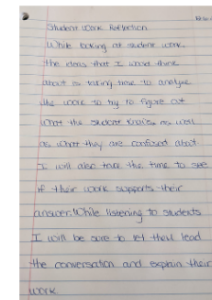 Student Work Reflection
While looking at student work
the ideas that I would think
about is taking time to analyze
the work so try to figure out
what the student knows as well
as what they are confused about
I will also take the time to see
if their work supports their
answer. While listening to students
I will be sure to let them lead
the conversation and explain their
work